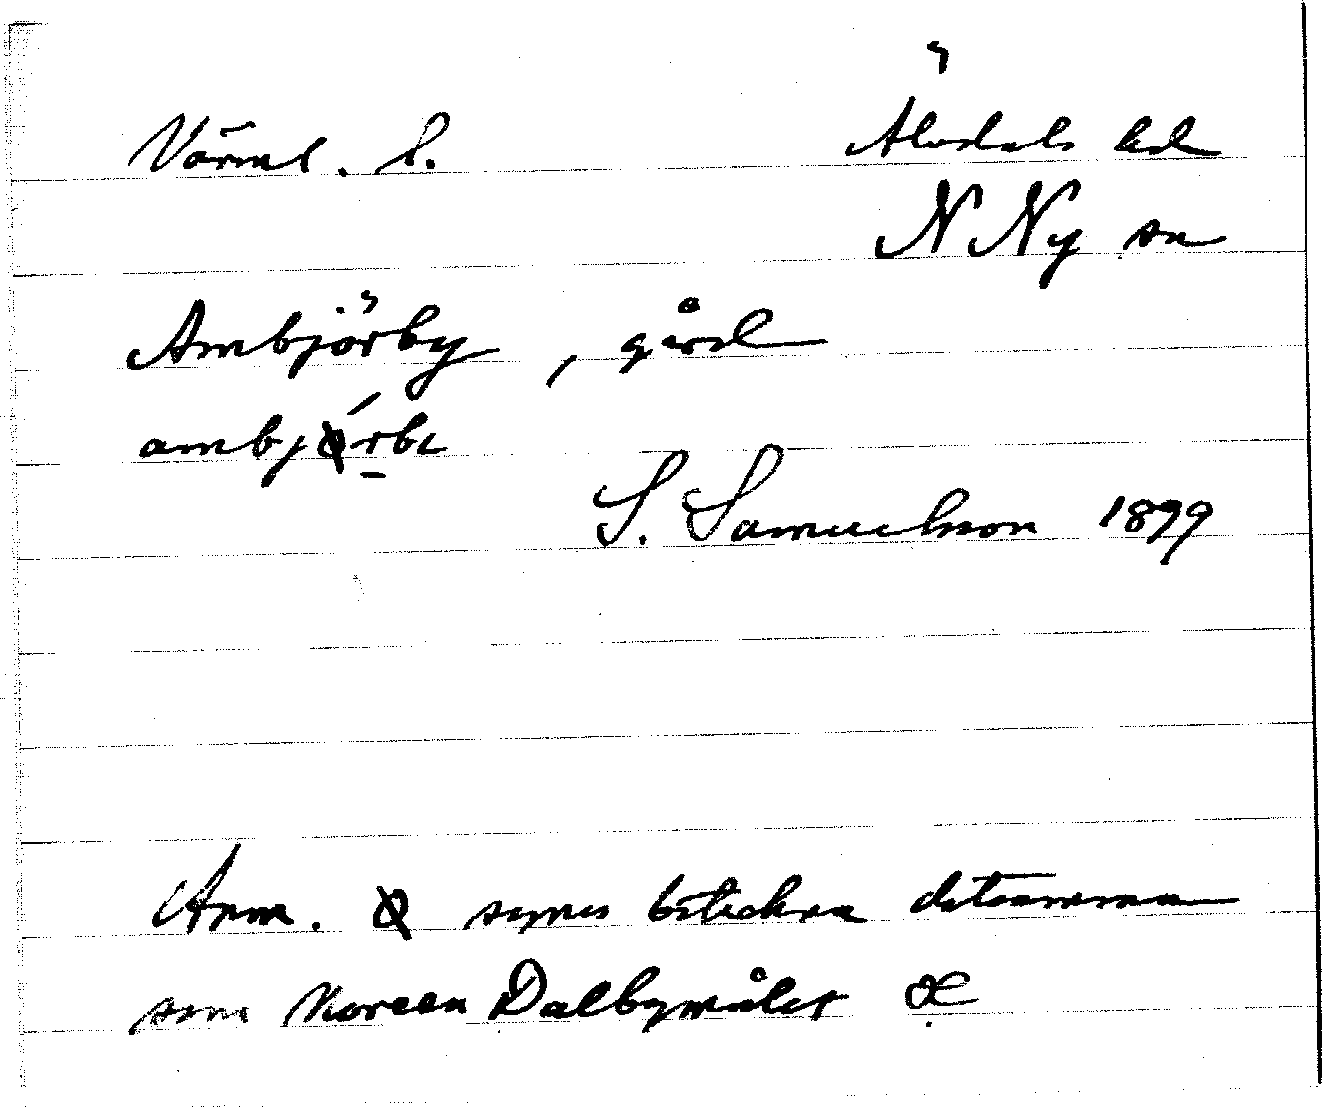 Värml. l. Älvdals hd
N Ny sn
Ambjörby, gård
ambjǿrbı
S. Samuelson 1899
Anm. ꞯ synes beteckna detsamma
som Noreen Dalbymålet